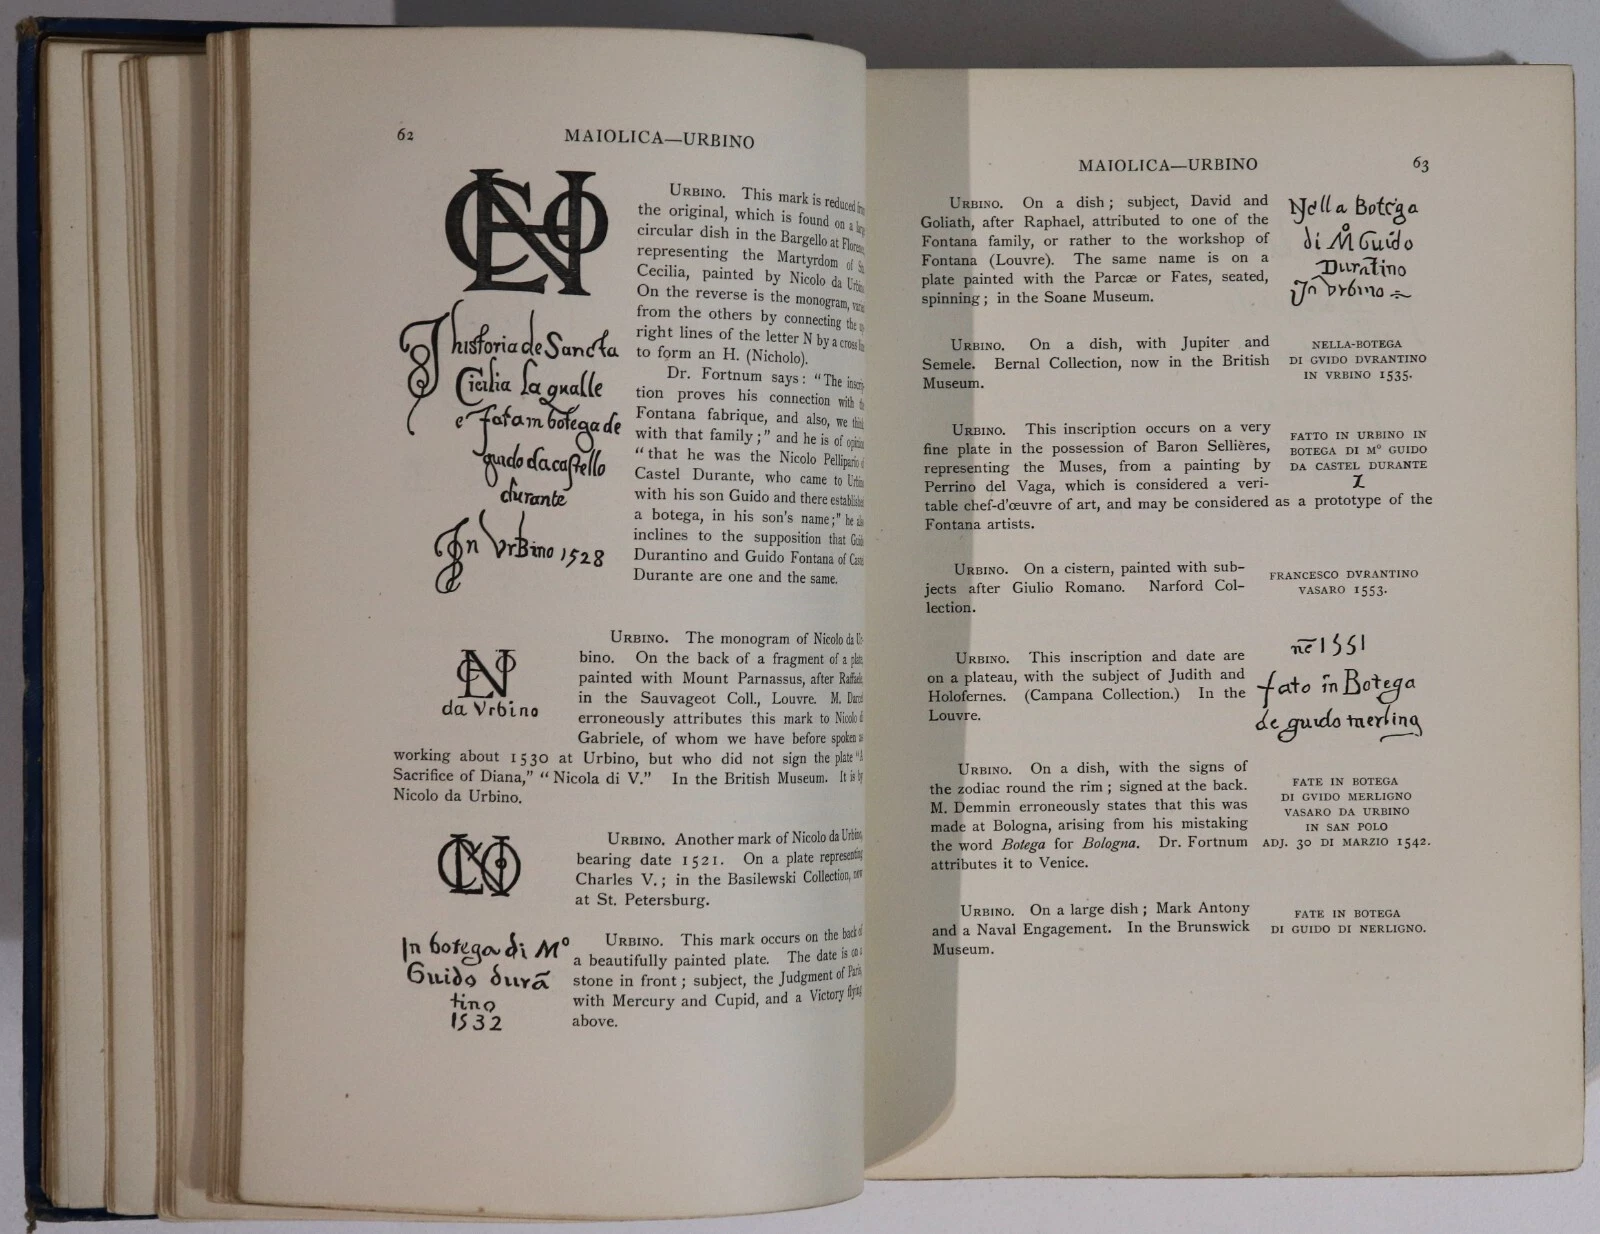 62
MAIOLICA—URBINO
URBINO. This mark is reduced from
the original, which is found on a large
circular dish in the Bargello at Florence,
representing the Martyrdom of Sta.
Cecilia, painted by Nicolo da Urbino.
On the reverse is the monogram,
from the others by connecting the
right lines of the letter N by a cross
to form an H. (Nicholo).
Dr. Fortnum says: "The
tion proves his connection with
Fontana fabrique, and also, we think
with that family;" and he is of opinion
"that he was the Nicolo Pellipario of
Castel Durante, who came to Urbino
with his son Guido and there established
a botega, in his son's name;" he also
inclines to the supposition that Guido
Durantino and Guido Fontana of Castel
Durante are one and the same.
historia de Sancta
Cicilia la qualle
e fata in botega de
guido da castello
durante
In Urbino 1528
URBINO. The monogram of Nicolo da Ur-
bino. On the back of a fragment of a plate
painted with Mount Parnassus, after Raffaele,
in the Sauvageot Coll., Louvre. M. Darcel
erroneously attributes this mark to Nicolo di
Gabriele, of whom we have before spoken as
working about 1530 at Urbino, but who did not sign the plate "A
Sacrifice of Diana," "Nicola di V." In the British Museum. It is by
Nicolo da Urbino.
da Vrbino
URBINO. Another mark of Nicolo da Urbino,
bearing date 1521. On a plate representing
Charles V.; in the Basilewski Collection, now
at St. Petersburg.
URBINO. This mark occurs on the back of
a beautifully painted plate. The date is on a
stone in front; subject, the Judgment of Paris,
with Mercury and Cupid, and a Victory flying
above.
In botega di Mº
Guido durā
tino
1532
MAIOLICA—URBINO
63
URBINO. On a dish; subject, David and
Goliath, after Raphael, attributed to one of the
Fontana family, or rather to the workshop of
Fontana (Louvre). The same name is on a
plate painted with the Parcæ or Fates, seated,
spinning; in the Soane Museum.
Nella Botega
di Mº Guido
Durātino
In Vrbino
URBINO. On a dish, with Jupiter and
Semele. Bernal Collection, now in the British
Museum.
NELLA-BOTEGA
DI GVIDO DVRANTINO
IN VRBINO 1535.
URBINO. This inscription occurs on a very
fine plate in the possession of Baron Sellières,
representing the Muses, from a painting by
Perrino del Vaga, which is considered a veri-
table chef-d'œuvre of art, and may be considered as a prototype of the
Fontana artists.
FATTO IN URBINO IN
BOTEGA DI Mº GUIDO
DA CASTEL DURANTE
URBINO. On a cistern, painted with sub-
jects after Giulio Romano. Narford Col-
lection.
FRANCESCO DVRANTINO
VASARO 1553.
URBINO. This inscription and date are
on a plateau, with the subject of Judith and
Holofernes. (Campana Collection.) In the
Louvre.
nē 1551
fato in Botega
de guido merling
URBINO. On a dish, with the signs of
the zodiac round the rim; signed at the back.
M. Demmin erroneously states that this was
made at Bologna, arising from his mistaking
the word Botega for Bologna. Dr. Fortnum
attributes it to Venice.
FATE IN BOTEGA
DI GVIDO MERLIGNO
VASARO DA URBINO
IN SAN POLO
ADJ. 30 DI MARZIO 1542.
URBINO. On a large dish; Mark Antony
and a Naval Engagement. In the Brunswick
Museum.
FATE IN BOTEGA
DI GUIDO DI NERLIGNO.